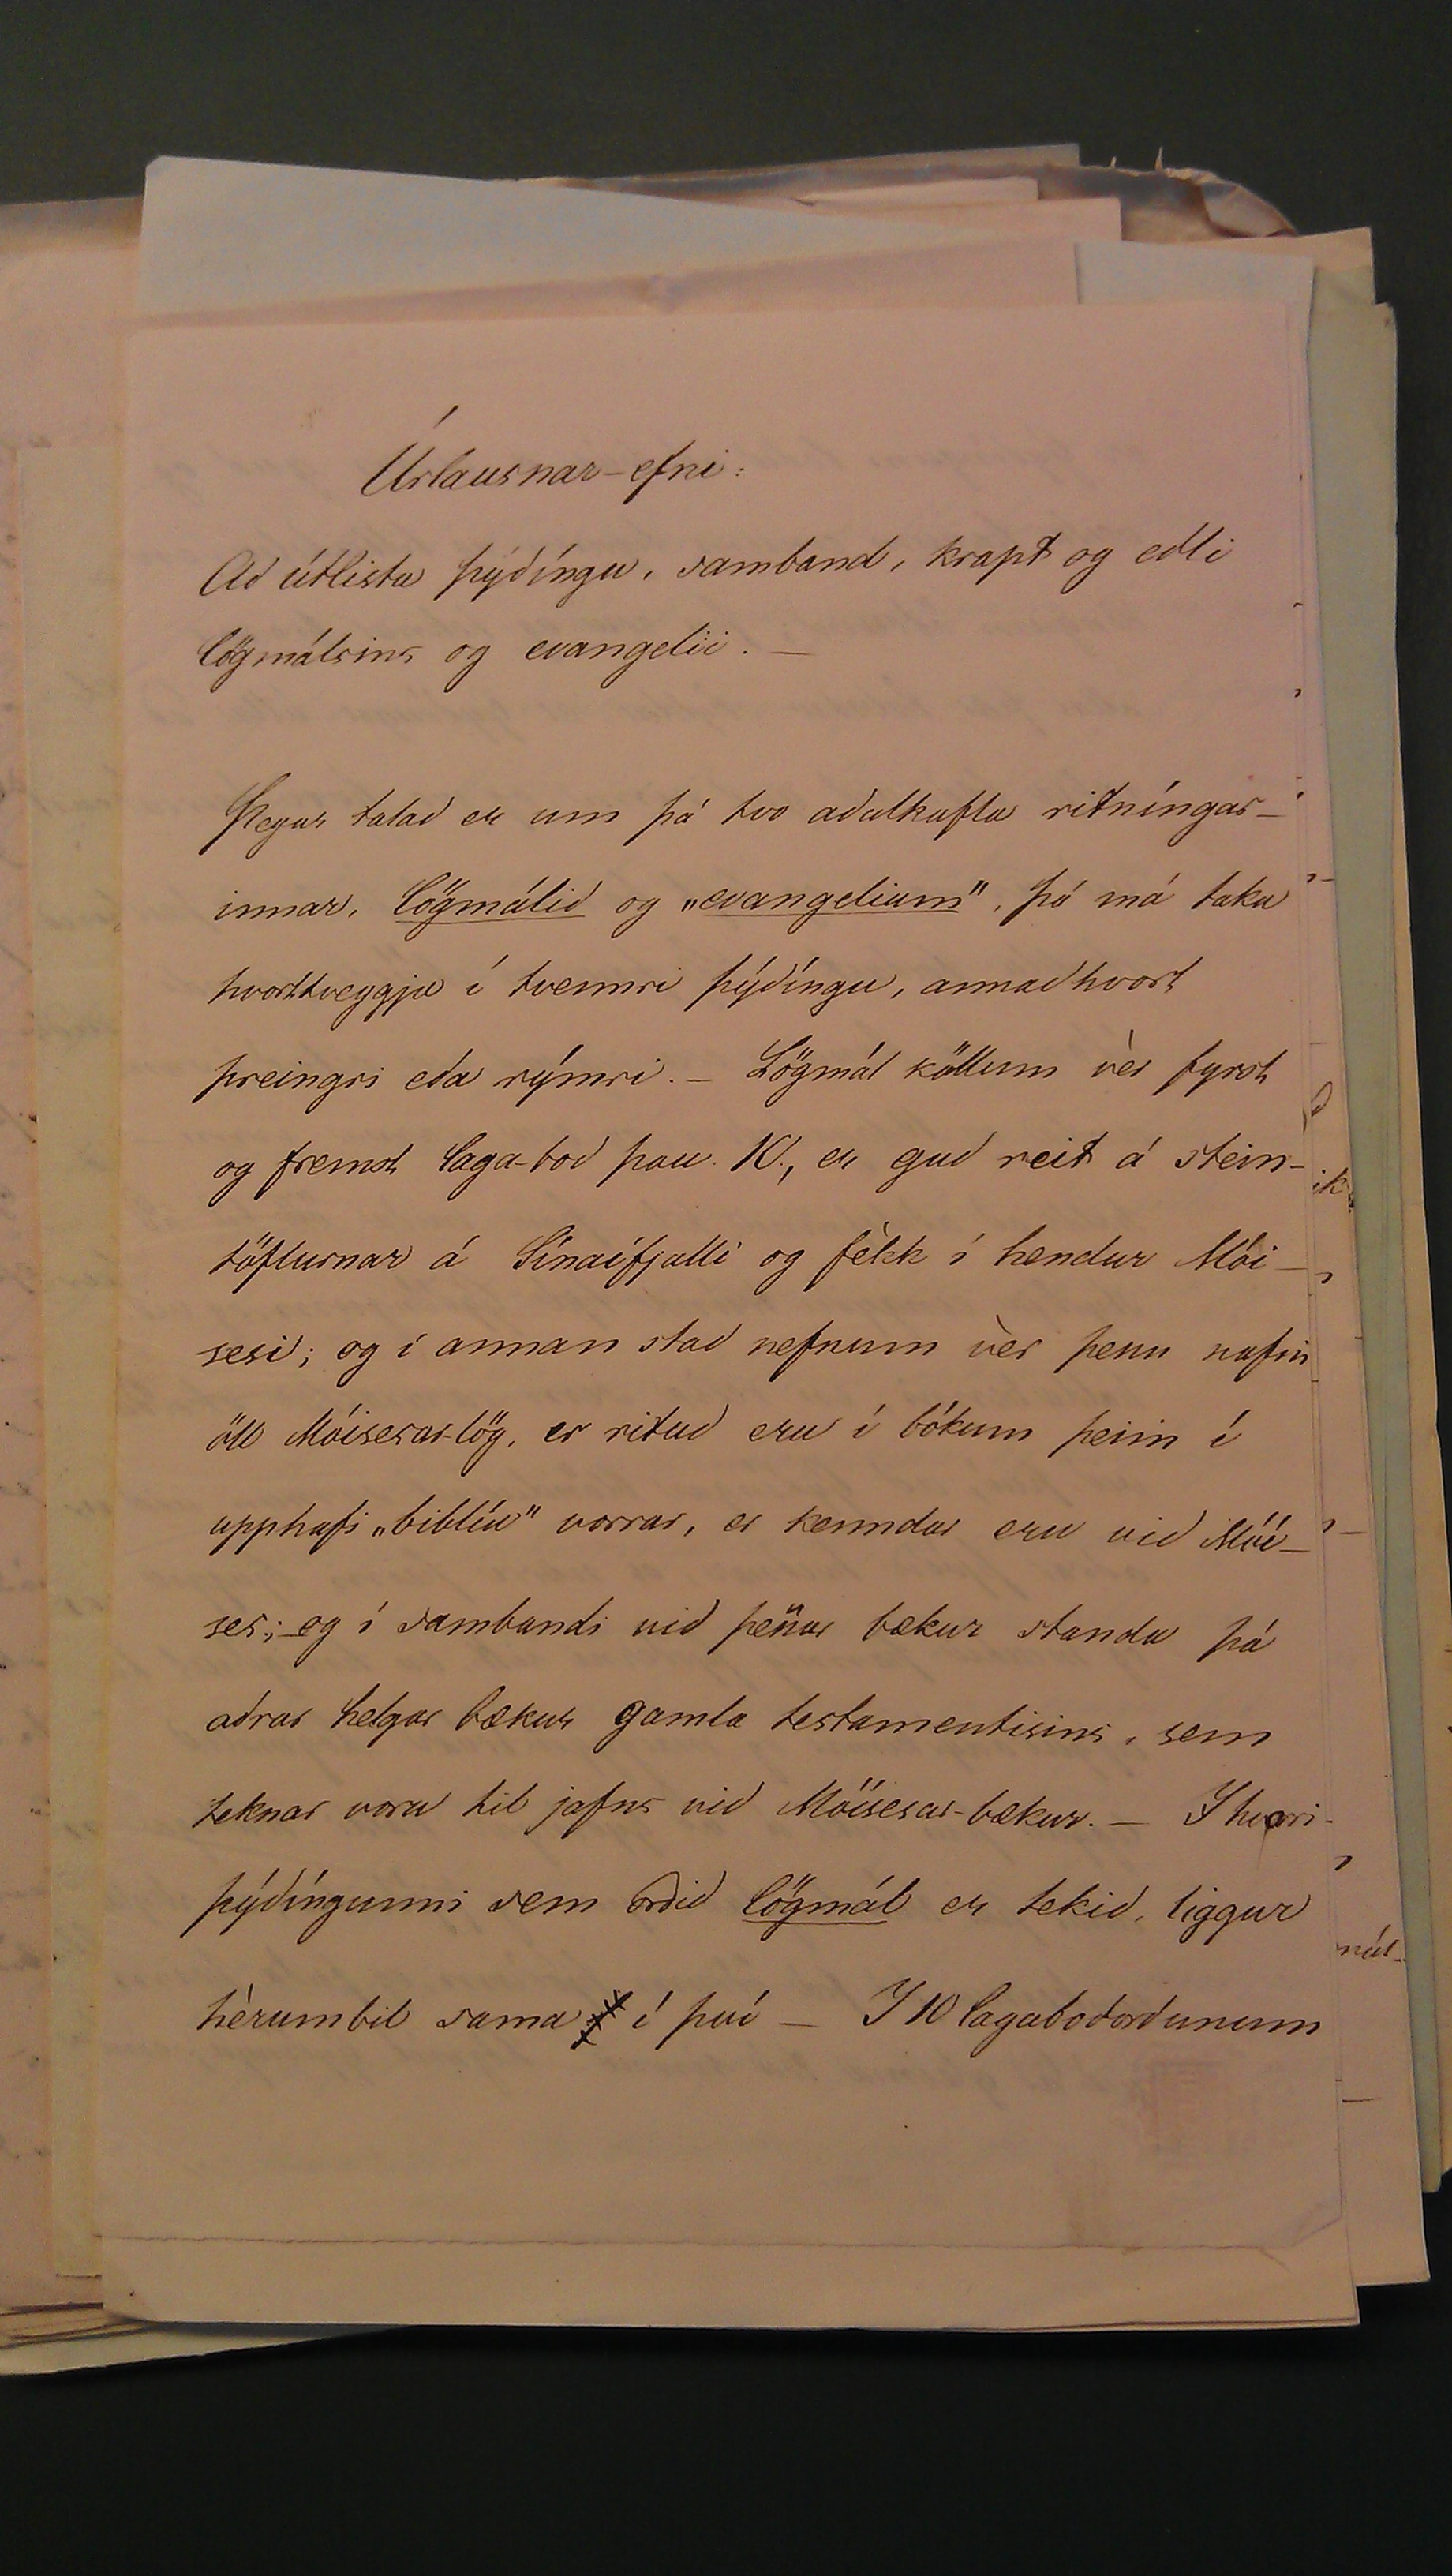 Úrlausnar-efni:
Að útlista þýðíngu, samband, krapt og eðli
lögmálsins og evangelii. —
Þegar talað er um þá tvo aðalkafla ritníngar-
innar, lögmálið og „evangelium", þá má taka
hvorttveggja í tvennri þýðíngu, annaðhvort
þreingri eða rýmri. – Lögmál köllum vèr fyrst
og fremst laga-boð þau 10, er guð reit á stein-
töflurnar á Sínaífjalli og fèkk í hendur Mói-
sesi; og í annan stað nefnum vèr þenn nafni
öll Móisesar-lög, er rituð eru í bókum þeim í
upphafi „biblíu" vorrar, er kenndar eru við Móí-
ses; og í sambandi við þen̄ar bækur standa þá
aðrar helgar bækur gamla testamentisins, sem
teknar voru til jafns við Móísesar-bækur. — I hvorri
þýðíngunni sem orðið lögmál er tekið, liggur
hèrumbil sama í því — I 10 lagaboðorðunum